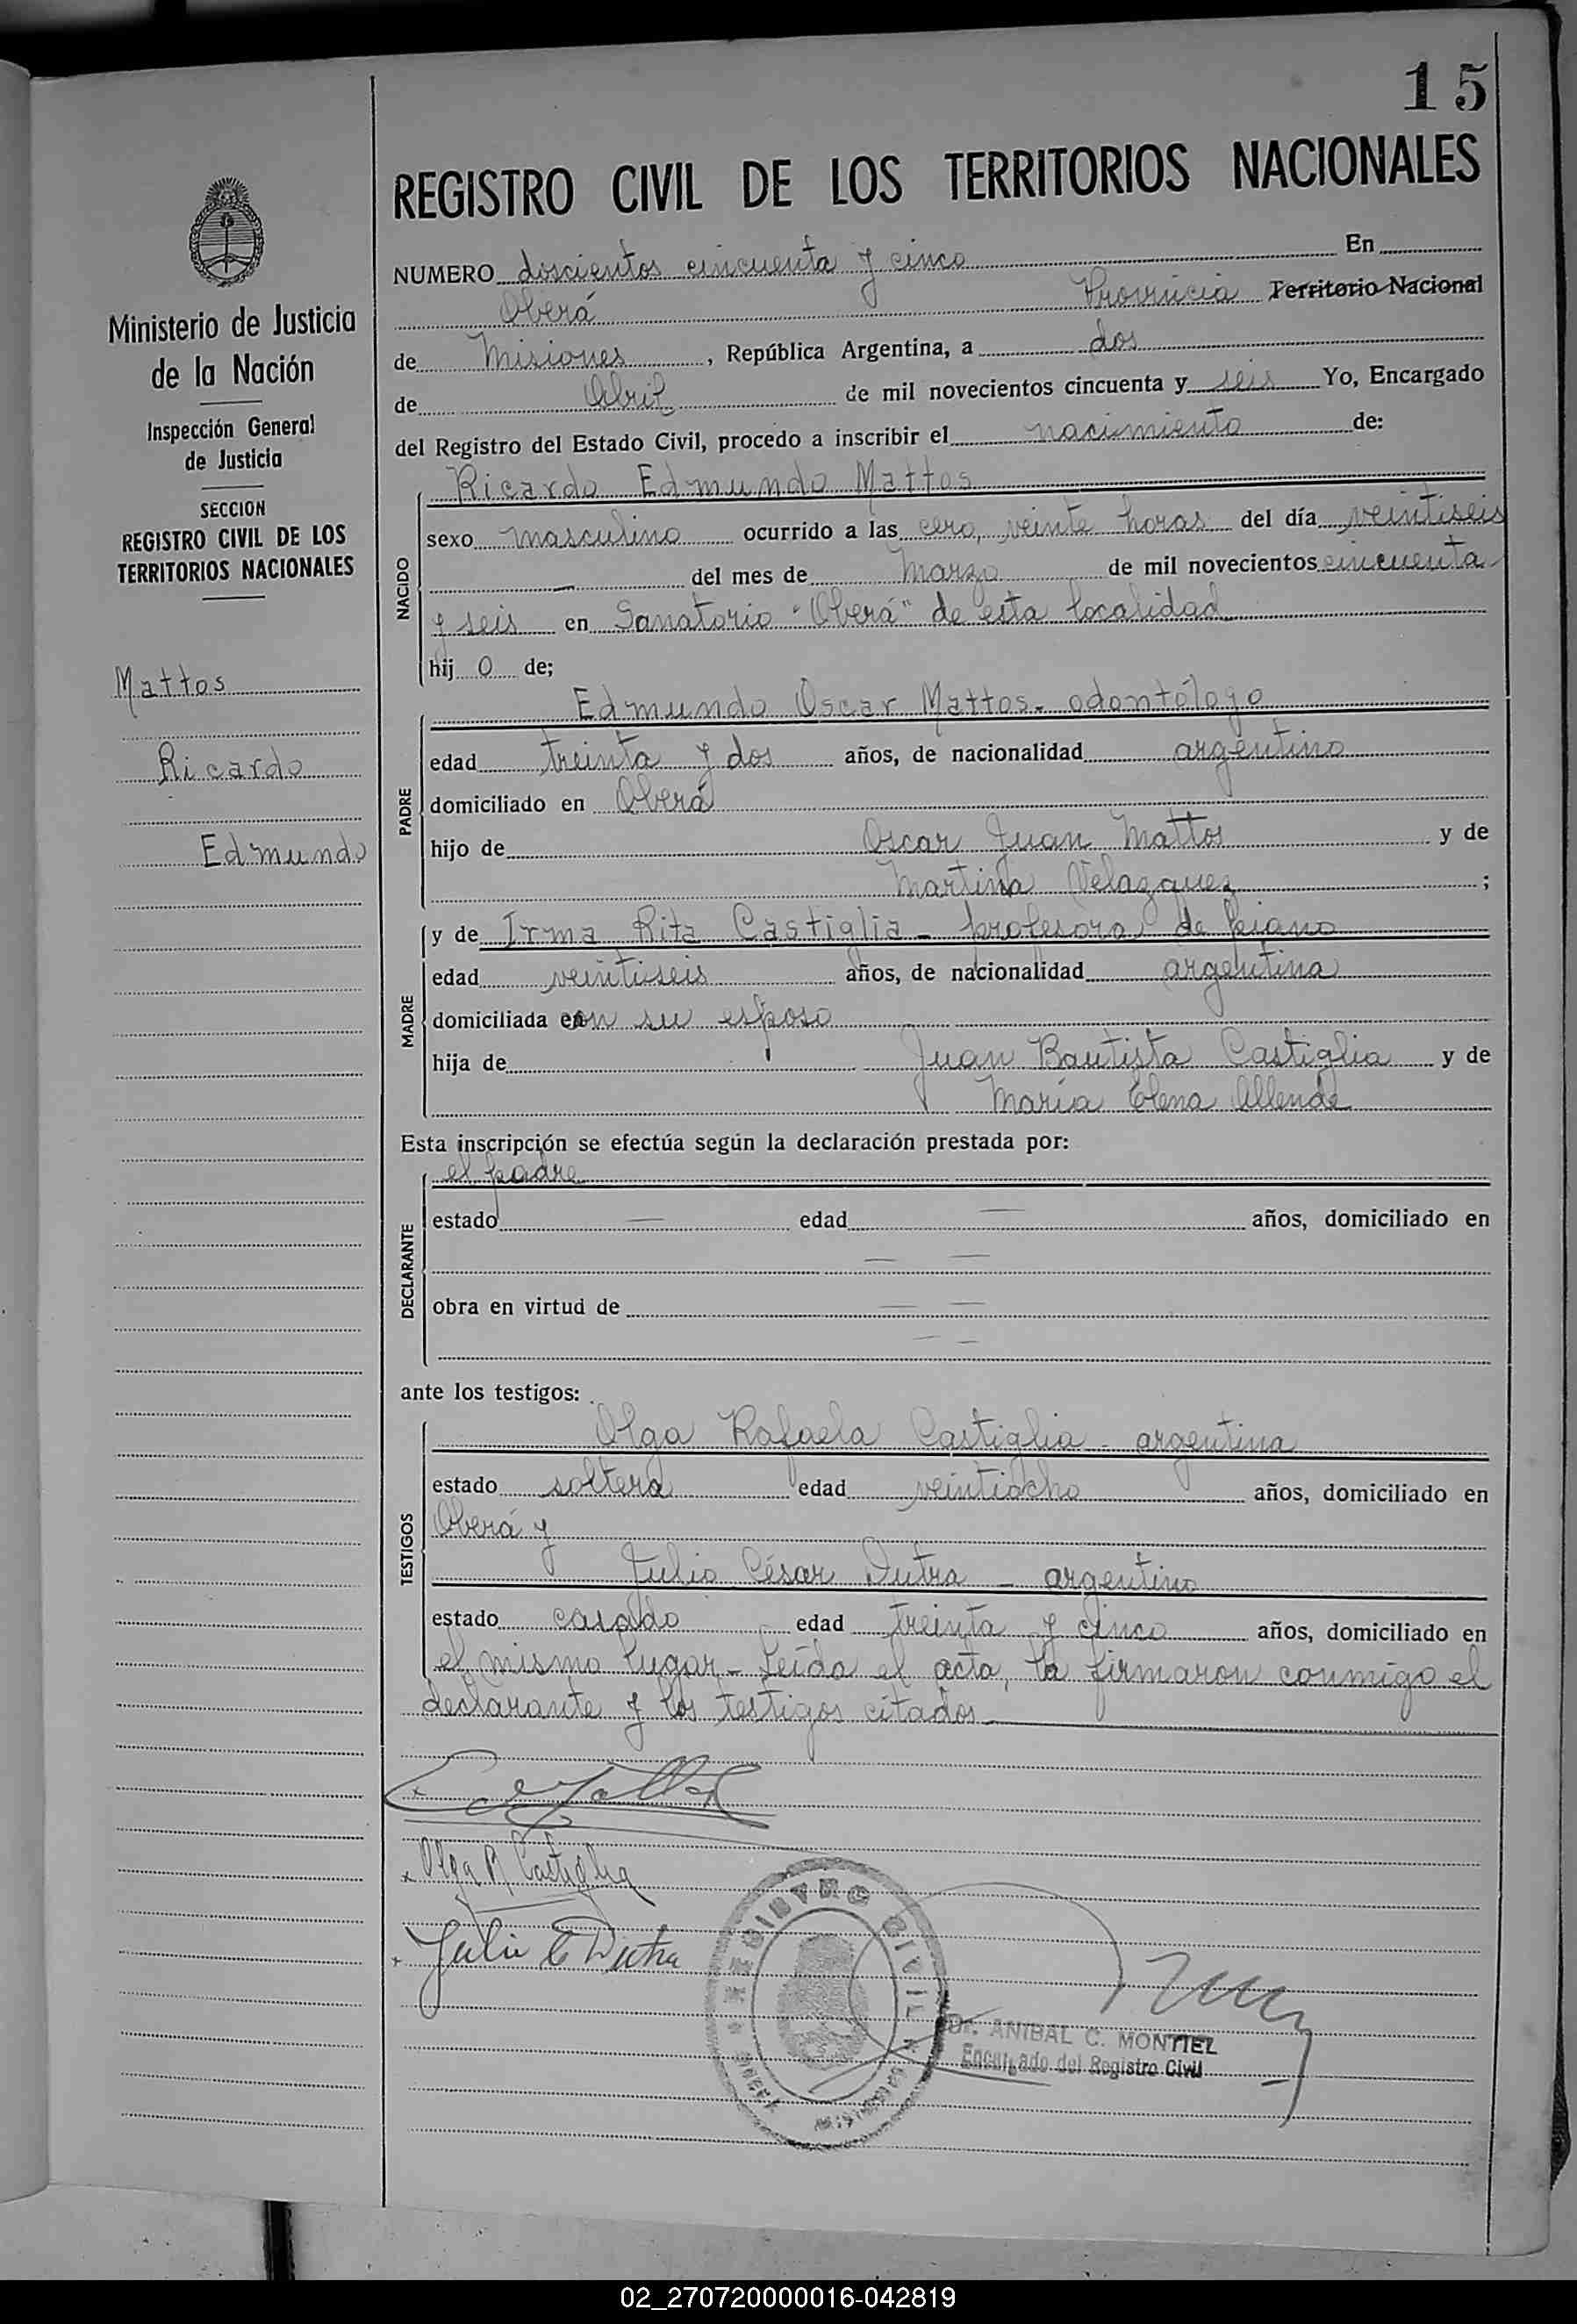 15
REGISTRO CIVIL DE LOS TERRITORIOS NACIONALES
Ministerio de Justicia
de la Nación
Inspección General
de Justicia
SECCION
REGISTRO CIVIL DE LOS
TERRITORIOS NACIONALES
Mattos
Ricardo
Edmundo
NUMERO doscientos cincuenta y cinco En
Oberá Provincia Territorio Nacional
de Misiones, República Argentina, a dos
de Abril de mil novecientos cincuenta y seis Yo, Encargado
del Registro del Estado Civil, procedo a inscribir el nacimiento de:
NACIDO
Ricardo Edmundo Mattos
sexo masculino ocurrido a las cero, veinte horas del día veintiseis
— del mes de Marzo de mil novecientos cincuenta
y seis en Sanatorio "Oberá" de esta localidad
hijo de;
PADRE
Edmundo Oscar Mattos - odontólogo
edad treinta y dos años, de nacionalidad argentino
domiciliado en Oberá
hijo de Oscar Juan Mattos y de
Martina Velazquez ;
MADRE
y de Irma Rita Castiglia - profesora de piano
edad veintiseis años, de nacionalidad argentina
domiciliada con su esposo
hija de Juan Bautista Castiglia y de
María Elena Allende
Esta inscripción se efectúa según la declaración prestada por:
DECLARANTE
el padre
estado — edad — años, domiciliado en
— —
obra en virtud de — —
— —
ante los testigos:
TESTIGOS
Olga Rafaela Castiglia - argentina
estado soltera edad veintiocho años, domiciliado en
Oberá y
Julio César Dutra - argentino
estado casado edad treinta y cinco años, domiciliado en
el mismo lugar - Leída el acta, la firmaron conmigo el
declarante y los testigos citados
Olga R. Castiglia
Julio C Dutra
REGISTRO CIVIL
Dr. ANIBAL C. MONTIEL
Encargado del Registro Civil
02_270720000016-042819